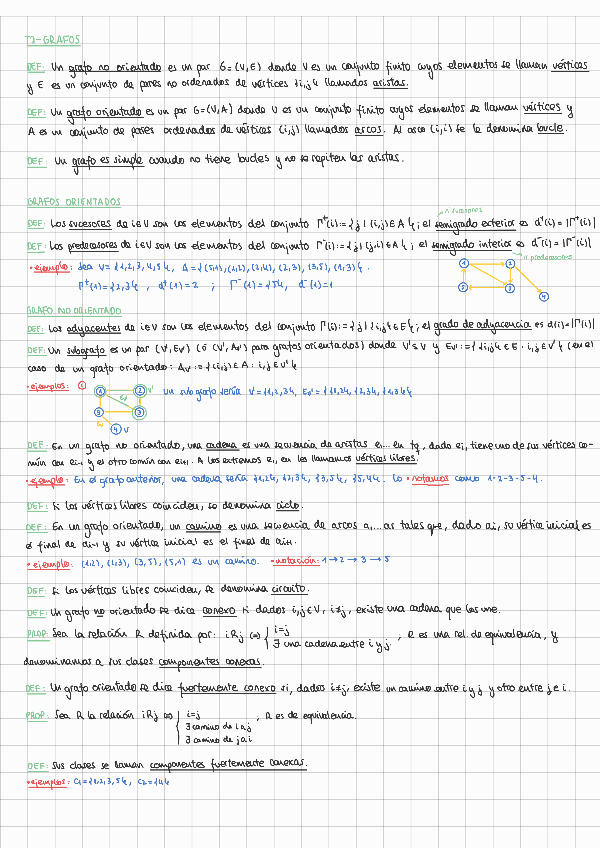 T7-GRAFOS
DEF: Un grafo no orientado es un par G=(V,E) donde V es un conjunto finito cuyos elementos se llaman vértices
y E es un conjunto de pares no ordenados de vértices {i,j} llamados aristas.
DEF: Un grafo orientado es un par G=(V,A) donde V es un conjunto finito cuyos elementos se llaman vértices y
A es un conjunto de pares ordenados de vértices (i,j) llamados arcos. Al arco (i,i) se le denomina bucle.
DEF: Un grafo es simple cuando no tiene bucles y no se repiten las aristas.
GRAFOS ORIENTADOS
nº sucesores
DEF: Los sucesores de i∈V son los elementos del conjunto Γ⁺(i):={j | (i,j)∈A}; el semigrado exterior es d⁺(i)=|Γ⁺(i)|
DEF: Los predecesores de i∈V son los elementos del conjunto Γ⁻(i):={j | (j,i)∈A}; el semigrado interior es d⁻(i)=|Γ⁻(i)|
nº predecesores
• ejemplo: Sea V={1,2,3,4,5}, A={(5,1),(1,2),(2,4),(2,3),(3,5),(1,3)}.
Γ⁺(1)={2,3}, d⁺(1)=2 ; Γ⁻(1)={5}, d⁻(1)=1
1 2
5 3
4
GRAFO NO ORIENTADO
DEF: Los adyacentes de i∈V son los elementos del conjunto Γ(i):={j | {i,j}∈E}; el grado de adyacencia es d(i)=|Γ(i)|
DEF: Un subgrafo es un par (V',Ev') (ó (V',Av') para grafos orientados) donde V'⊆V y Ev':={{i,j}∈E : i,j∈V'} (en el
caso de un grafo orientado: Av':={(i,j)∈A : i,j∈V'}
• ejemplos: 1 2 V' un subgrafo sería V'={1,2,3}, Ev'={{1,2},{2,3},{1,3}}
5 3
4 V
DEF: En un grafo no orientado, una cadena es una secuencia de aristas e₁...en tq, dada ei, tiene uno de sus vértices co-
mún con ei-1 y el otro común con ei+1. A los extremos e₁,en les llamamos vértices libres.
• ejemplo: En el grafo anterior, una cadena sería {1,2}, {2,3}, {3,5}, {5,4}. Lo • notamos como 1-2-3-5-4.
DEF: Si los vértices libres coinciden, se denomina ciclo.
DEF: En un grafo orientado, un camino es una secuencia de arcos a₁...ar tales que, dado ai, su vértice inicial es
el final de ai-1 y su vértice inicial es el final de ai+1.
• ejemplo: (1,2), (2,3), (3,5), (5,1) es un camino. • notación: 1→2→3→5
DEF: Si los vértices libres coinciden, se denomina circuito.
DEF: Un grafo no orientado se dice conexo si dados i,j∈V, i≠j, existe una cadena que los une.
PROP: Sea la relación R definida por: iRj ⇔ { i=j
∃ una cadena entre i y j. , R es una rel. de equivalencia, y
denominamos a sus clases componentes conexas.
DEF: Un grafo orientado se dice fuertemente conexo si, dados i≠j, existe un camino entre i y j y otro entre j e i.
PROP: Sea R la relación iRj ⇔ | i=j , R es de equivalencia.
∃ camino de i a j
∃ camino de j a i
DEF: Sus clases se llaman componentes fuertemente conexas.
• ejemplos: C₁={1,2,3,5}, C₂={4}